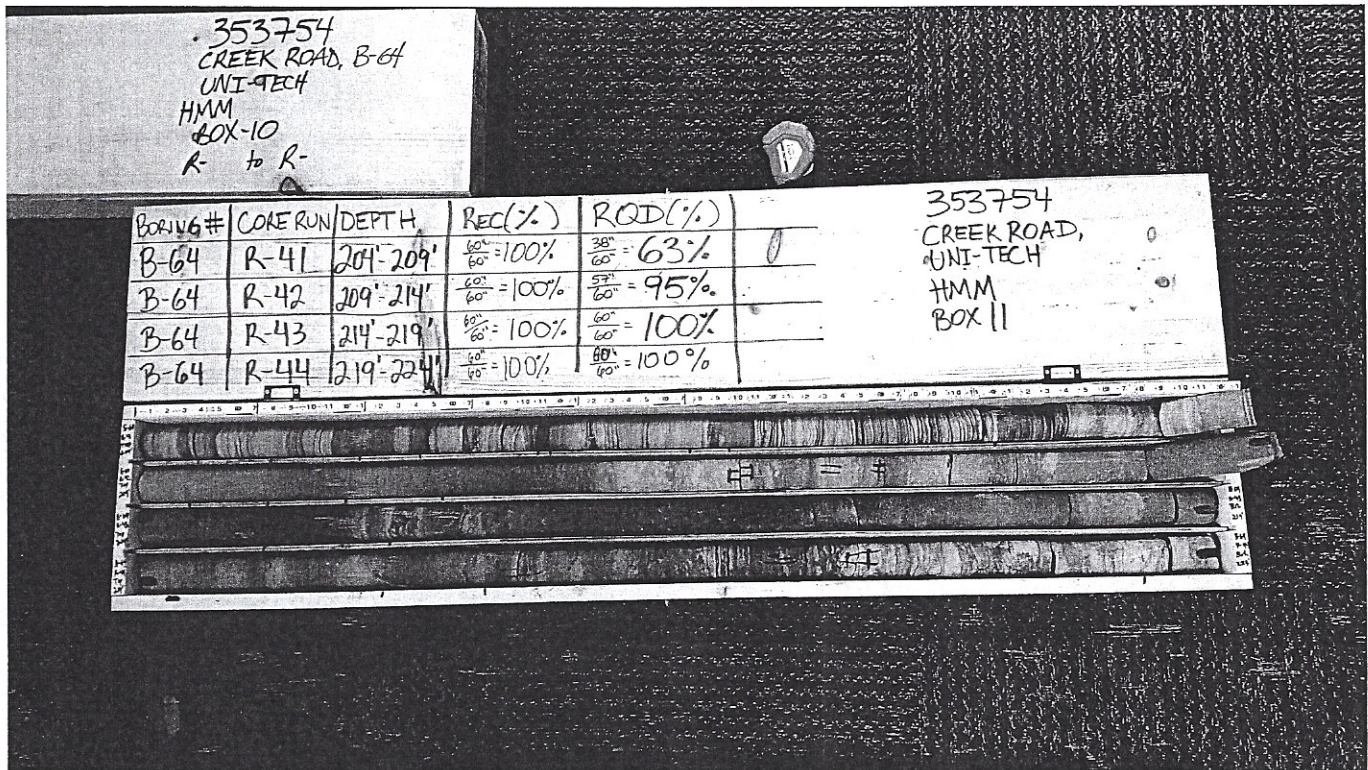 353754
CREEK ROAD, B-64
UNI-TECH
HMM
BOX-10
R- to R-
BORING # CORE RUN DEPTH REC(%) RQD(%)
B-64 R-41 204'-209' 60"/60" =100% 38"/60" = 63%
B-64 R-42 209'-214' 60"/60" =100% 57"/60" = 95%
B-64 R-43 214'-219' 60"/60" = 100% 60"/60" = 100%
B-64 R-44 219'-224' 60"/60" =100% 60"/60" =100%
353754
CREEK ROAD,
UNI-TECH
HMM
BOX 11